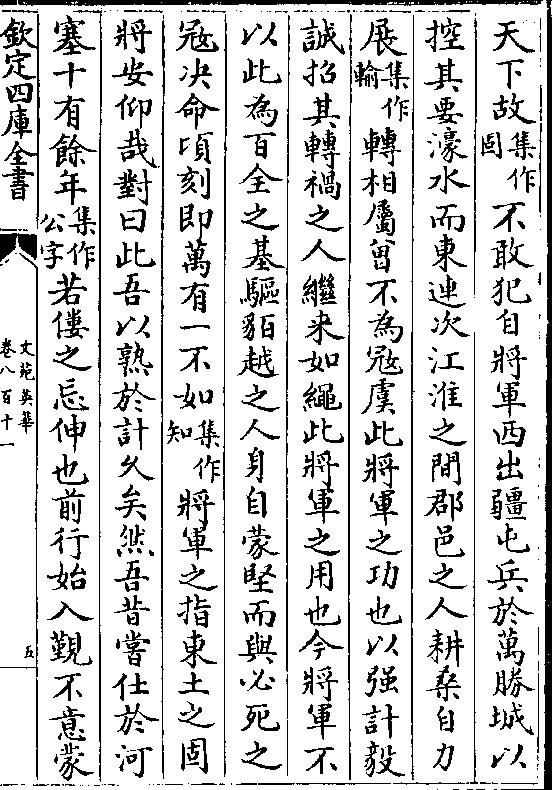 天下故集作固不敢犯自將軍西出疆屯兵於萬勝城以
控其要濠水而東連次江淮之間郡邑之人耕桑自力
展集作輸轉相屬曾不為冦虞此將軍之功也以强計毅
誠招其轉禍之人繼来如繩此將軍之用也今將軍不
以此為百全之基驅貊越之人身自蒙堅而與必死之
冦决命頃刻即萬有一不如集作知將軍之指東土之固
將安仰哉對曰此吾以熟於計久矣然吾昔嘗仕於河
塞十有餘年集作公字若僂之忌伸也前行始入覲不意蒙
欽定四庫全書
文苑英華
卷八百十一
五